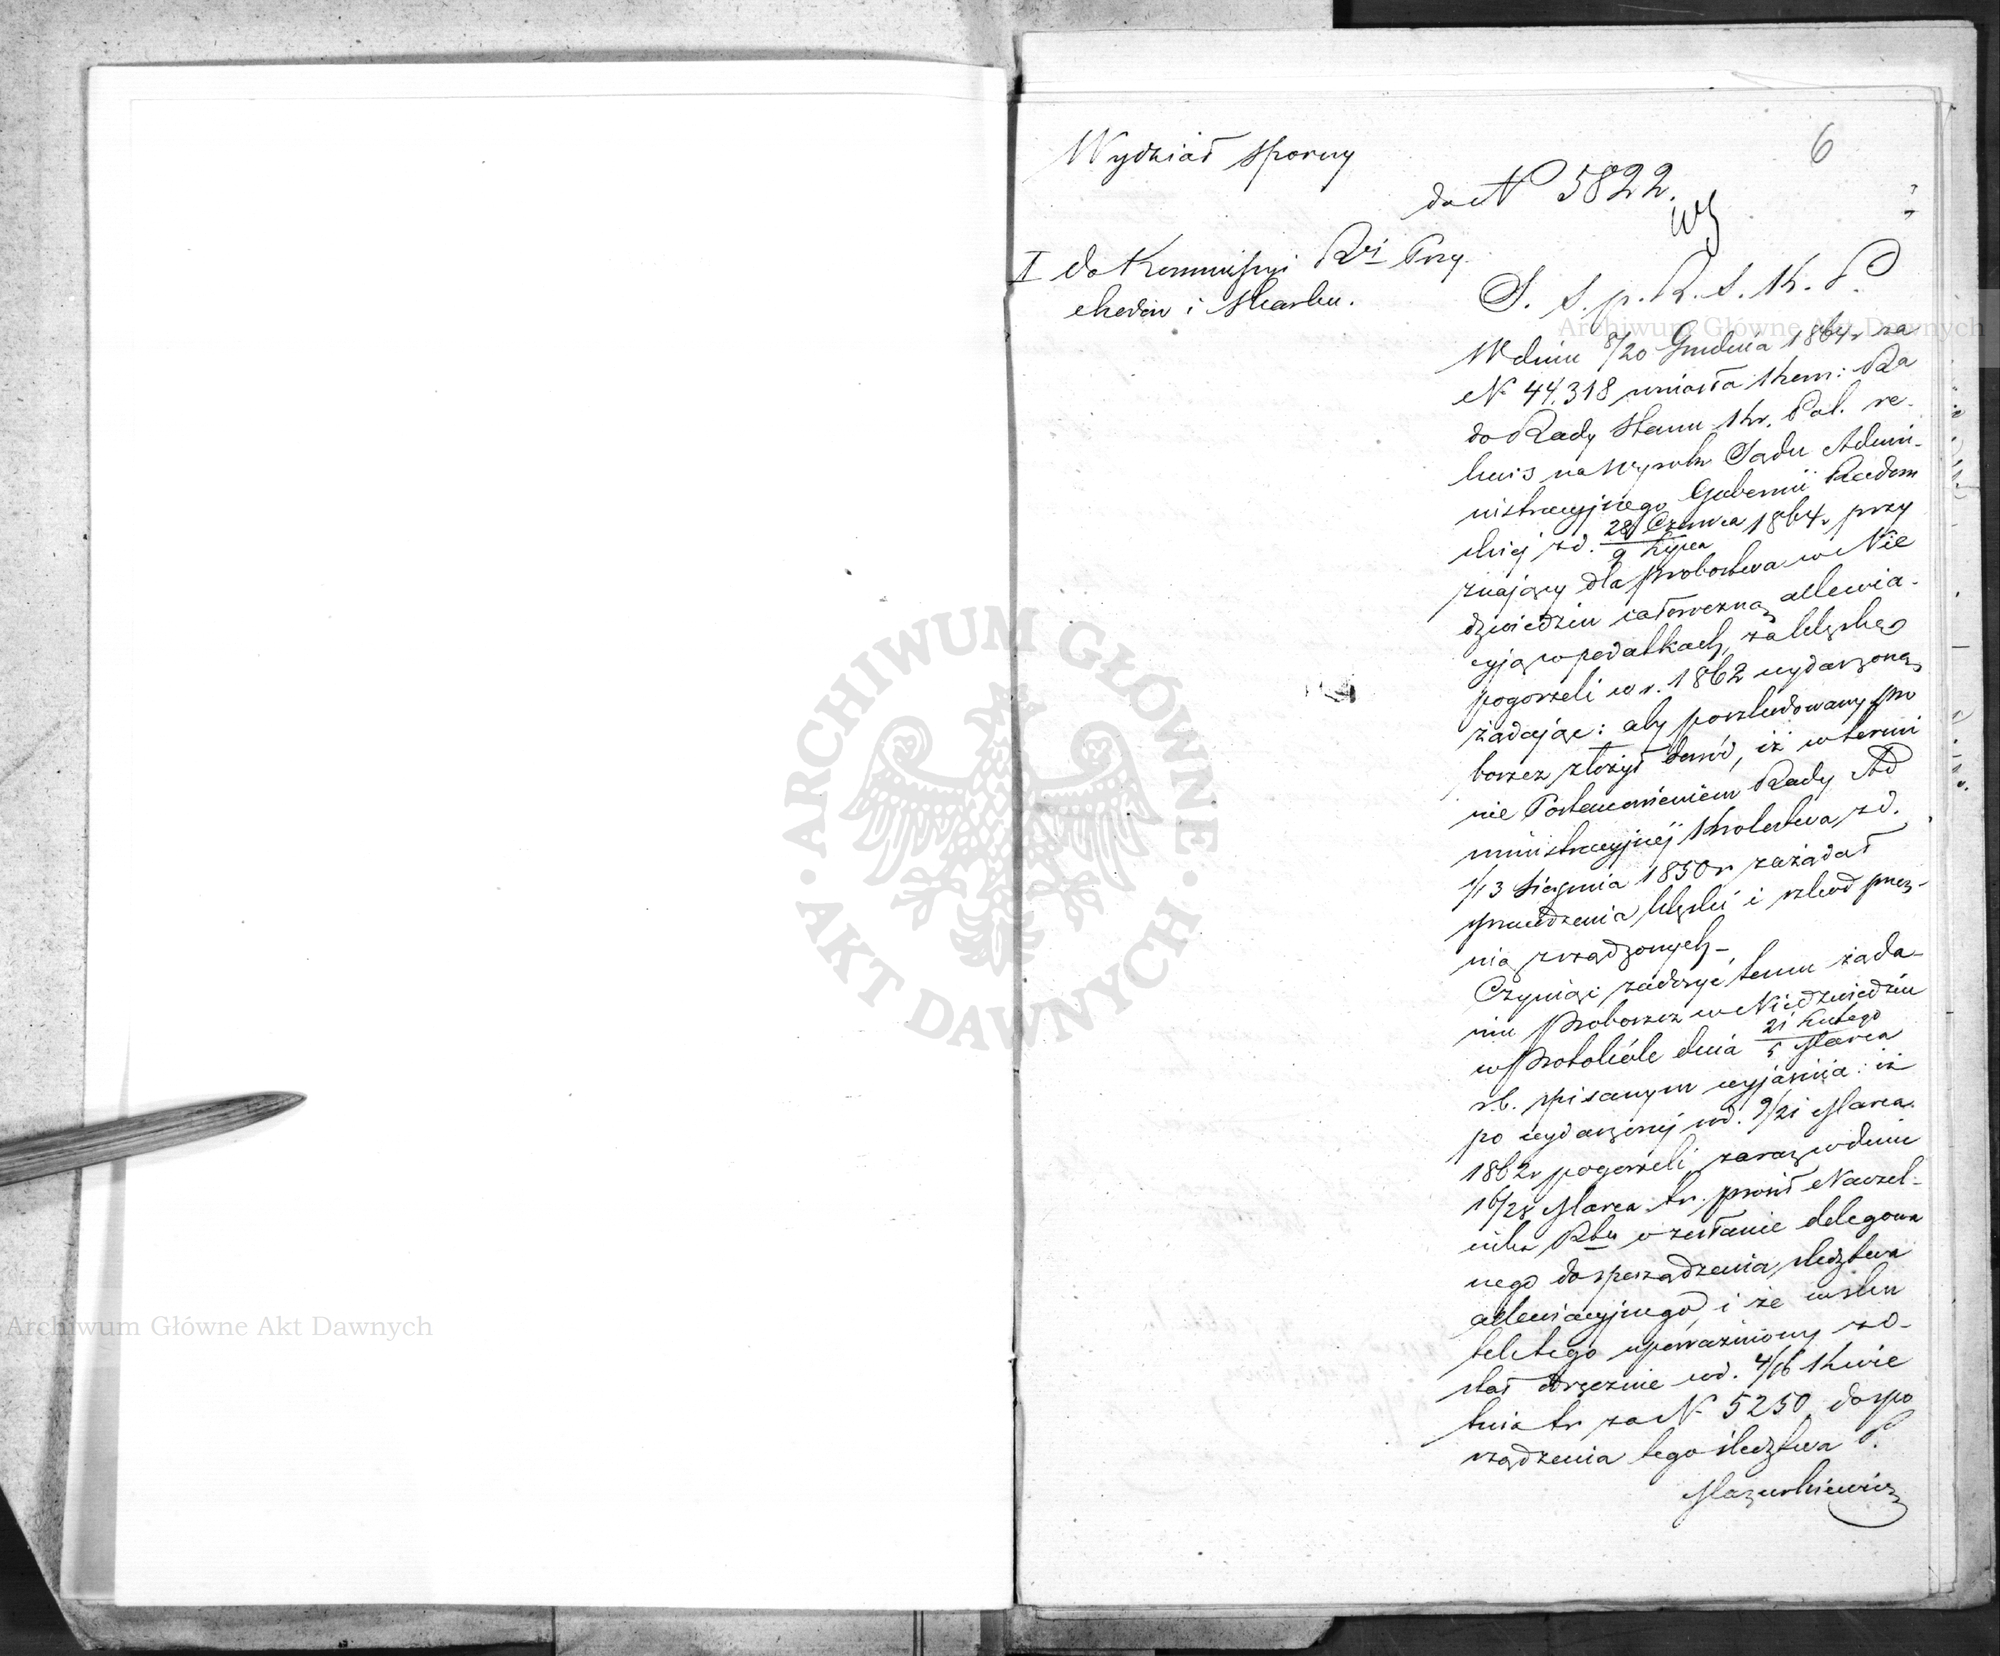 6
Wydział sporny
do N 5822.
I do Kommissyi Rz. Przy
chodów i Skarbu.
S. S. p. R. S. K. P.
W dniu 8/20 Grudnia 1864 r za
N 44.318 wniosła Kom: Rza
do Rady Stanu Kr. Pol. re-
kurs na wyrok Sądu Admi-
nistracyjnego Gubernii Radom
skiej z d. 28 Czerwca/9 Lipca 1864 r przy
znający dla probostwa w Nie
dzwiedziu całoroczną allewia-
cyją w podatkach, za klęskę
pogorzeli w r. 1862 wydarzoną,
żądając: aby poszkodowany pro
boszcz złożył dowód, iż w termi
nie Postanowieniem Rady Ad
ministracyjnej Królestwa z d.
1/13 Sierpnia 1850 r zażądał
sprawdzenia klęski i szkód przez
nią zrządzonych –
Czyniąc zadosyć temu żąda-
niu proboszcz w Niedzwiedziu
w protokóle dnia 21 Lutego/5 Marca
r.b. spisanym wyjaśnia: iż
po wydarzonej w d. 9/21 Marca
1862 r pogorzeli, zaraz w dniu
16/28 Marca t.r. prosił Naczel-
nika Ptu o zesłanie delegowa
nego do sporządzenia śledztwa
allewiacyjnego, i że wsku
tek tego upoważniony zo-
stał odręcznie w d. 4/16 Kwie
tnia t.r za N 5250 do spo
rządzenia tego śledztwa P.
Mazurkiewicz
Archiwum Główne Akt Dawnych
Archiwum Główne Akt Dawnych
ARCHIWUM GŁÓWNE
· AKT DAWNYCH ·